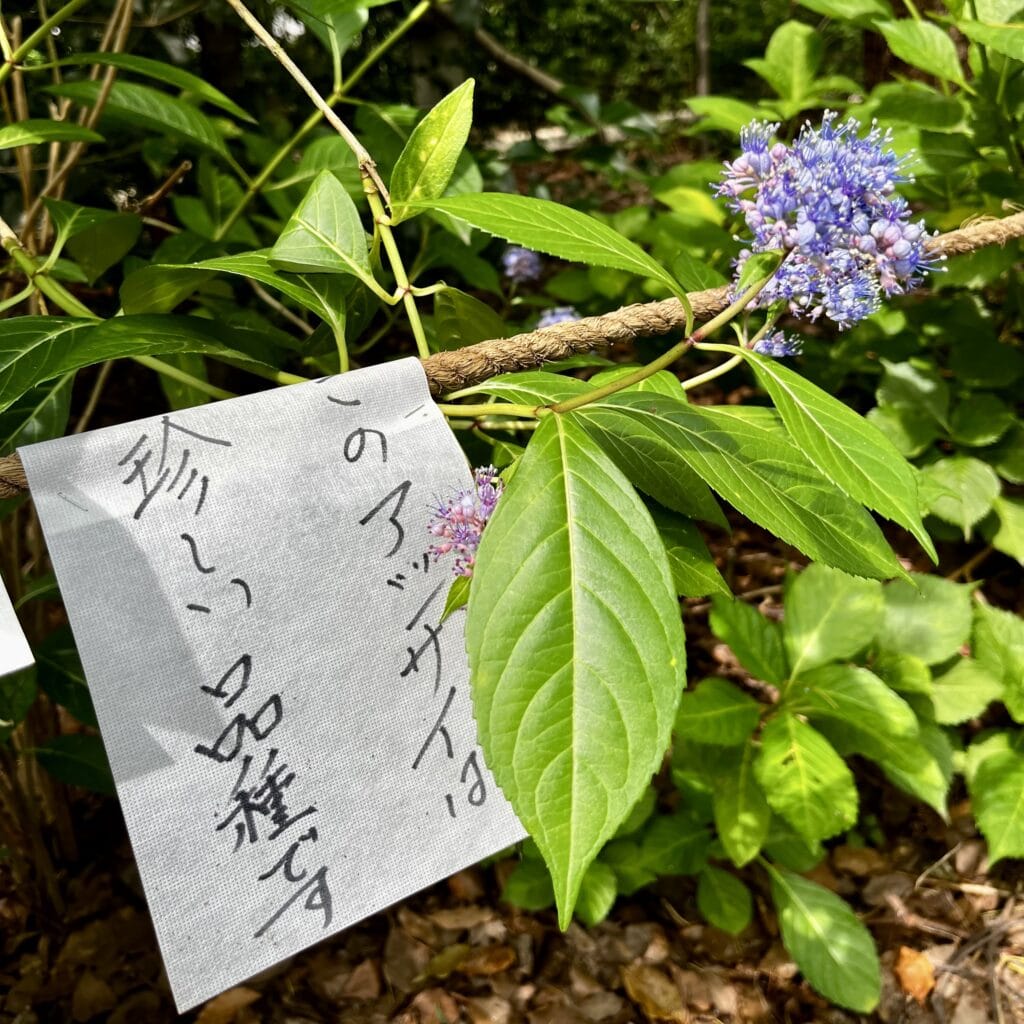 このアジサイは
珍しい品種です